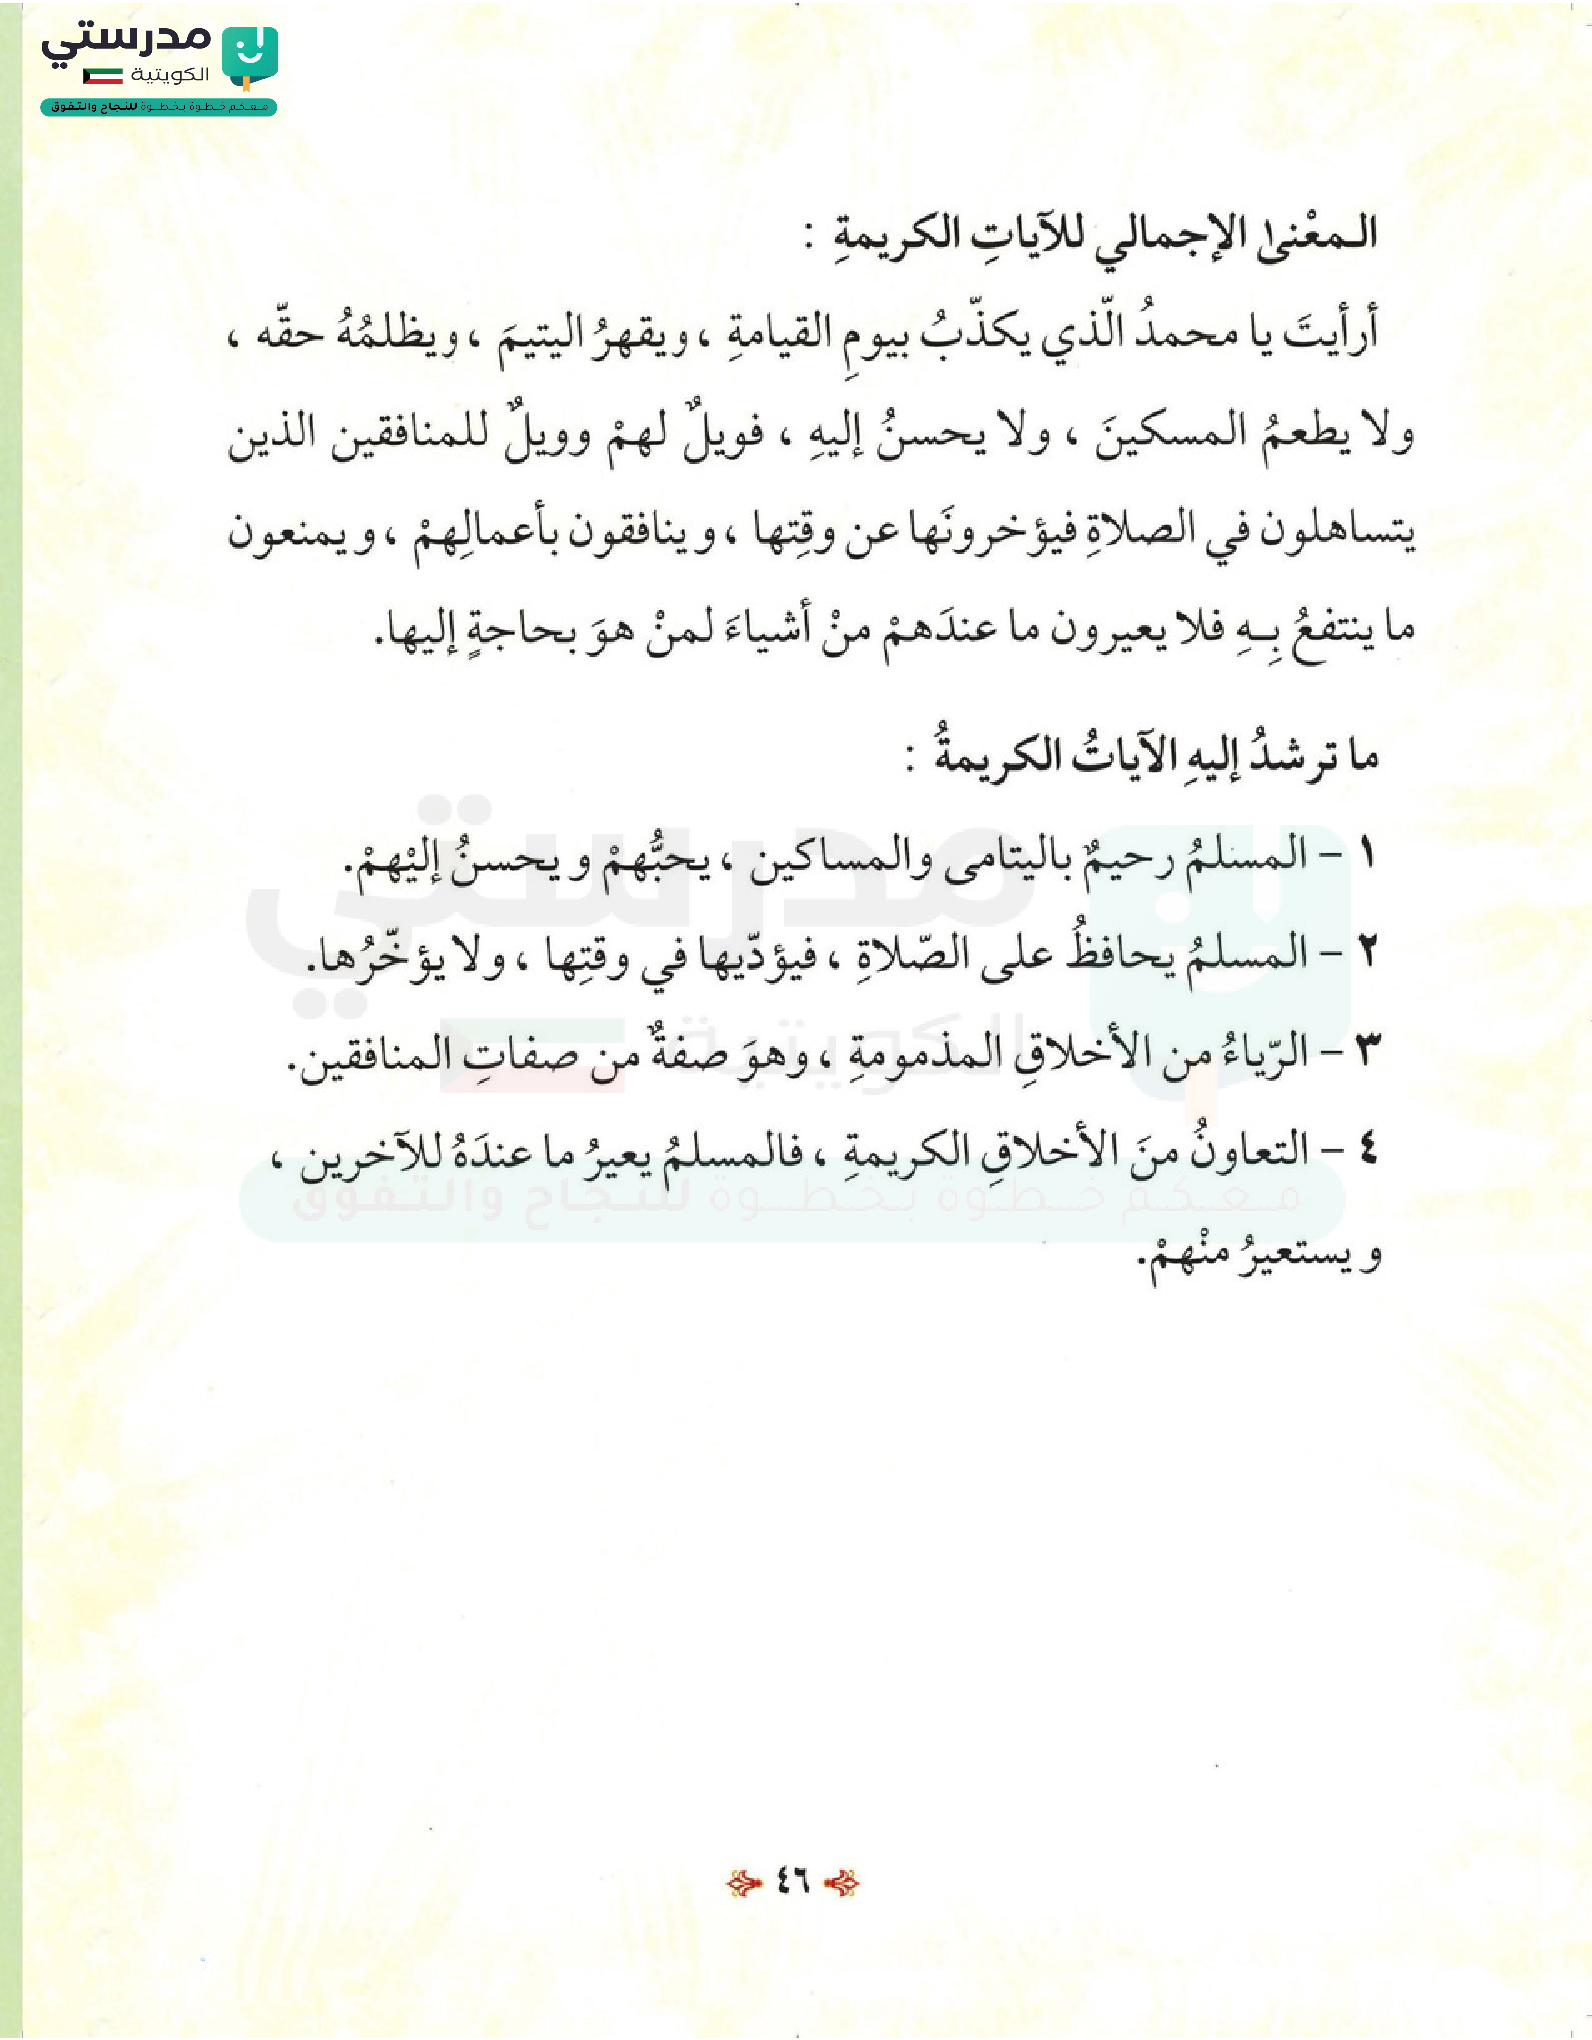 مدرستي
الكويتية
معكم خطوة بخطوة للنجاح والتفوق
المعْنىٰ الإجمالي للآياتِ الكريمةِ :
أرأيتَ يا محمدُ الّذي يكذّبُ بيومِ القيامةِ ، ويقهرُ اليتيمَ ، ويظلمُهُ حقّه ،
ولا يطعمُ المسكينَ ، ولا يحسنُ إليهِ ، فويلٌ لهمْ وويلٌ للمنافقين الذين
يتساهلون في الصلاةِ فيؤخرونَها عن وقتِها ، وينافقون بأعمالِهمْ ، ويمنعون
ما ينتفعُ بِـهِ فلا يعيرون ما عندَهمْ منْ أشياءَ لمنْ هوَ بحاجةٍ إليها.
ما ترشدُ إليهِ الآياتُ الكريمةُ :
١ – المسلمُ رحيمٌ باليتامى والمساكين ، يحبُّهمْ ويحسنُ إليْهمْ.
٢ – المسلمُ يحافظُ على الصّلاةِ ، فيؤدّيها في وقتِها ، ولا يؤخّرُها.
٣ – الرّياءُ من الأخلاقِ المذمومةِ ، وهوَ صفةٌ من صفاتِ المنافقين.
٤ – التعاونُ منَ الأخلاقِ الكريمةِ ، فالمسلمُ يعيرُ ما عندَهُ للآخرين ،
ويستعيرُ منْهمْ.
مدرستي
الكويتية
معكم خطوة بخطوة للنجاح والتفوق
٤٦